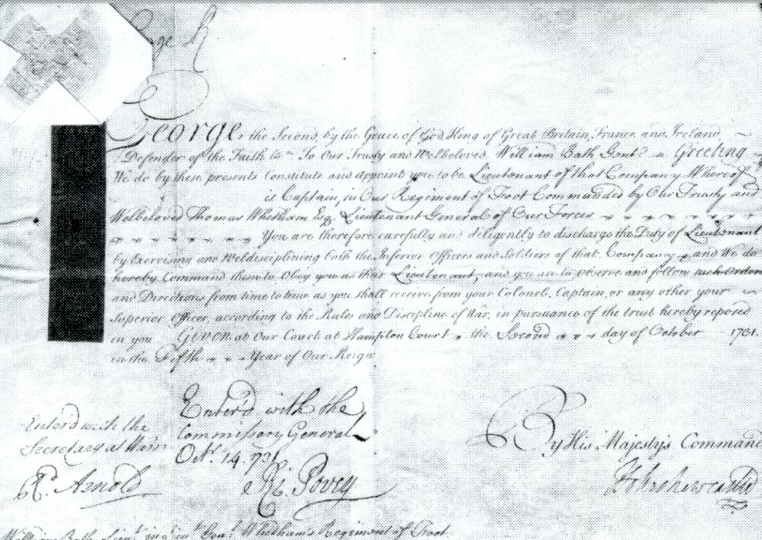 George R
George the Second, by the Grace of God, King of Great Britain, France, and Ireland,
Defender of the Faith &c. To Our Trusty and Welbeloved William Bath Gent. Greeting
We do by these presents Constitute and Appoint you to be Lieutenant of that Company Whereof
is Captain, in Our Regiment of Foot Commanded by Our Trusty and
Welbeloved Thomas Whetham Esq. Lieutenant General of Our Forces
You are therefore carefully and diligently to discharge the Duty of Lieutenant
by Exercising and Weldisciplining both the Inferior Officers and Soldiers of that Company and We do
hereby Command them to Obey you as their Lieutenant, and you are to observe and follow such Orders
and Directions from time to time as you shall receive from your Colonel, Captain, or any other your
Superior Officer, according to the Rules and Discipline of War, in pursuance of the trust hereby reposed
in you Given at Our Court at Hampton Court the Second day of October 1731.
in the Fifth Year of Our Reign
Enter'd with the
Secretary at War
Rd. Arnold
Enter'd with the
Commissary General
Octr. 14. 731
Povey
By His Majesty's Command
William Bath Lieut. in Genl. Whetham's Regiment of Foot.